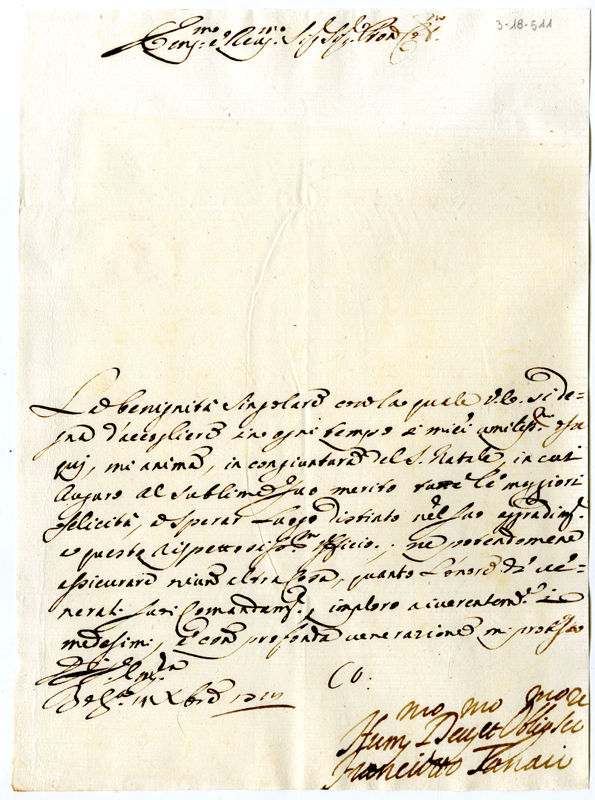 3-18-511
Em.mo e Rev.mo Sig.r Sig.r Pron Col.mo
La benignità singolare con la quale V. E. si de=
gna d'accogliere in ogni tempo i miei umiliss.mi osse
quj, mi anima, in congiuntura del S. Natale, in cui
Auguro al sublime suo merito tutte le maggiori
felicità, à sperar luogo distinto nel suo aggradim.to
a questo rispettosiss.mo officio; ne potendomene
assicurare niun altra cosa, quanto l'onore de ve=
nerati suoi Comandam.ti, imploro riverentem.te i
medesimi, e con profonda venerazione mi protesto
Di V. Em.za
Co.
Xbre
Hum.mo Dev.mo et Obligmo Ser.re
Tanari